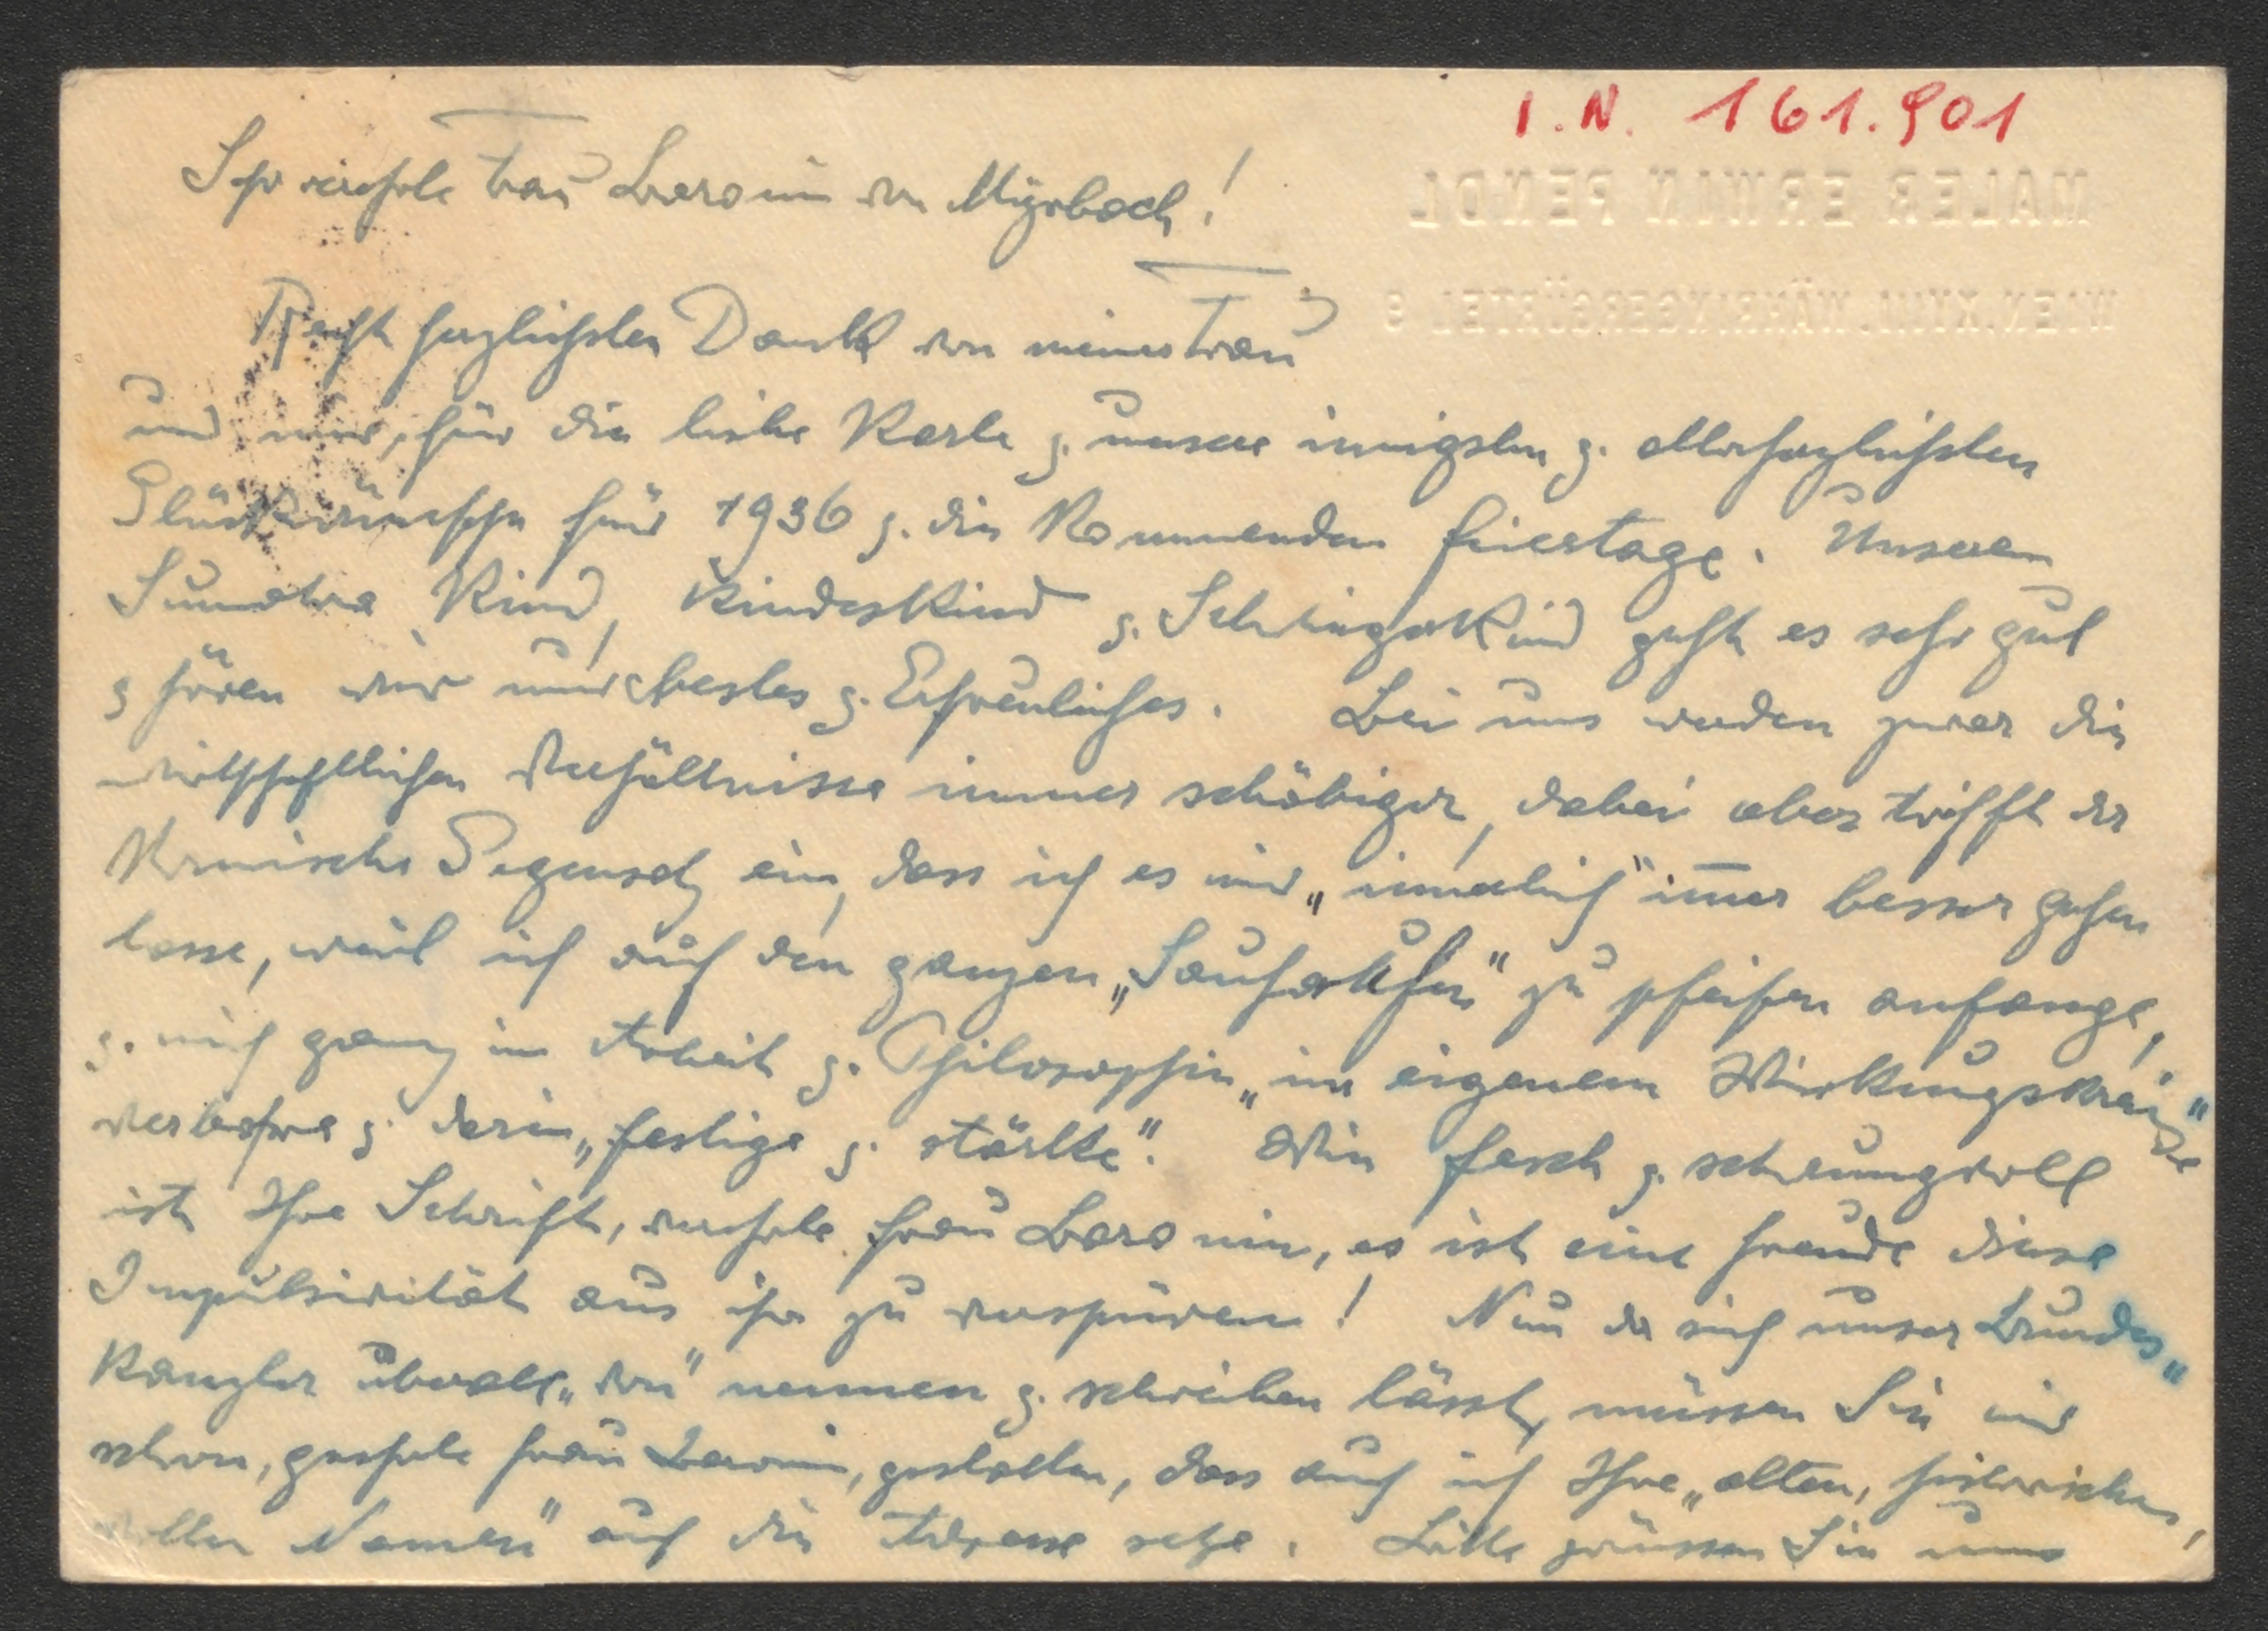 I.N. 161.901
MALER ERWIN PENDL
WIEN, XVIII. WÄHRINGERGÜRTEL 8
verehrte Frau Baronin von Myrbach!
Recht herzlichsten Dank von meiner Frau
und mir, für die liebe Karte u. unsere innigsten u. allerherzlichsten
Glückwünsche für 1936 u. die kommenden Feiertage. Unserem
Sumatra Kind, Kindeskind u. Schwiegerkind geht es sehr gut
u hören wir nur bestes u. Erfreuliches. Bei uns werden zwar die
wirtschaftlichen Verhältnisse immer schäbiger, dabei aber trifft der
komische Gegensatz ein, dass ich es mir „innerlich" im̄er besser gehen
lasse, weil ich auf den ganzen zu pfeifen anfange,
u. mich ganz in Arbeit u. Philosophie „im eigenem Wirkungskreise"
u. darin „festige u. stärke". Wie fesch u. schwungvoll
ist Ihre Schrift, verehrte Frau Baronin, es ist eine Freude diese
Impulsivität aus ihr zu verspüren! Nun da sich unser Bundes„
kanzler überall „von" nennen u. schreiben lässt, müssen Sie mir
schon, geehrte Frau Baronin, gestatten, dass auch ich Ihre „alten, historischen,
vollen Namen" auf die Adresse setze. Bitte grüssen Sie uns